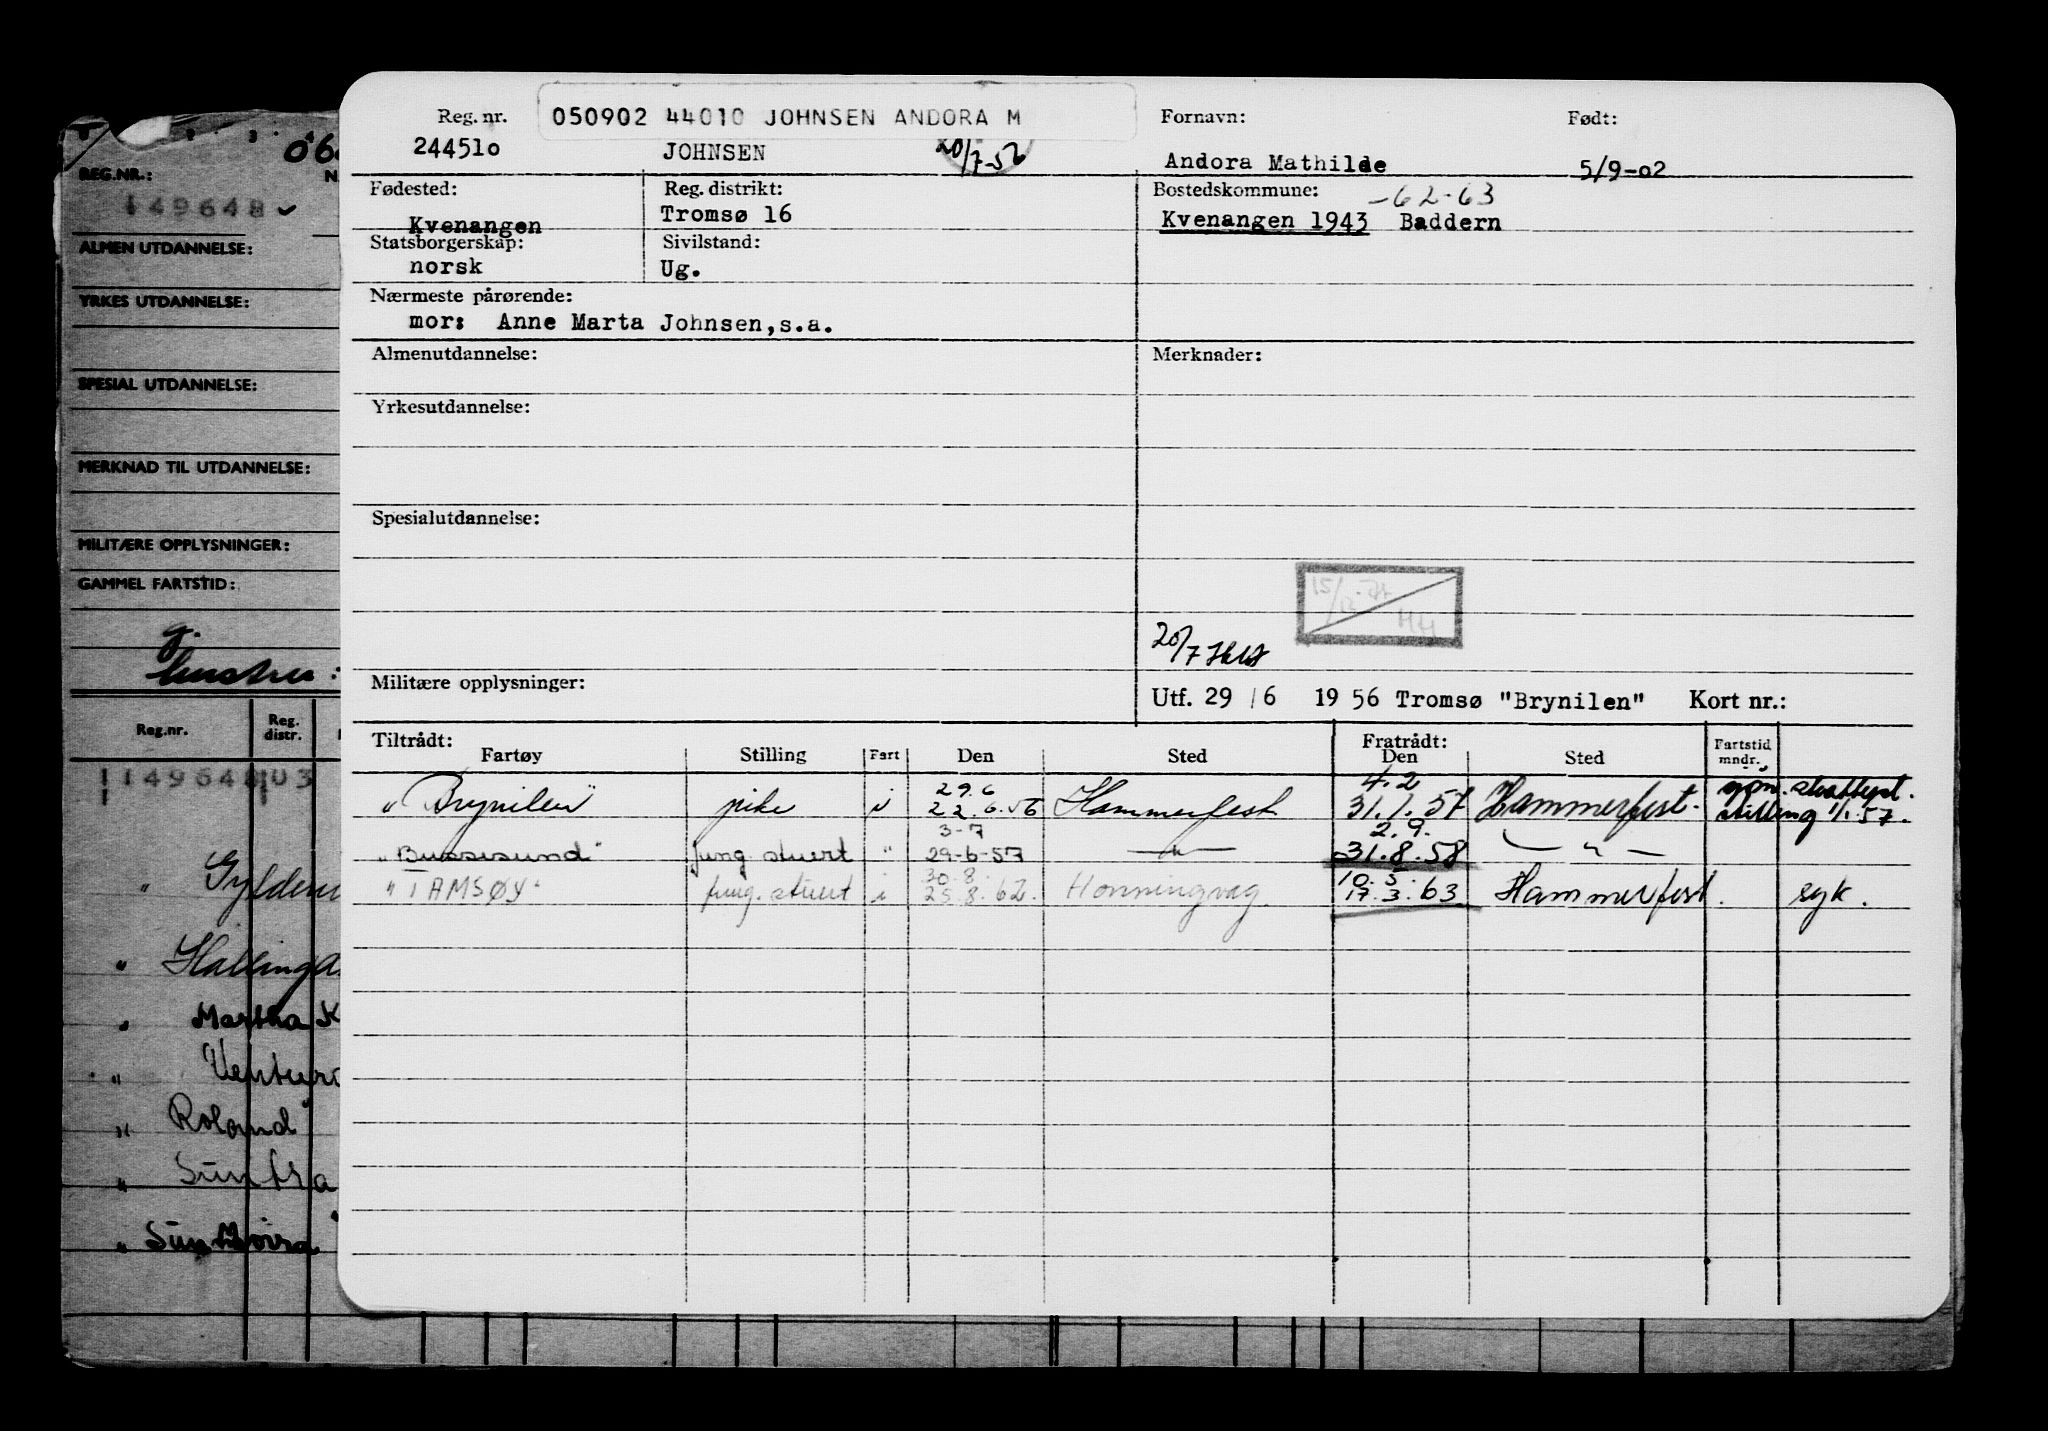 Reg. nr. 050902 44010 JOHNSEN ANDORA M Fornavn: Født:
244510 JOHNSEN 20/7-56 Andora Mathilde 5/9-02
Fødested: Reg. distrikt: Bostedskommune: -62-63
Kvenangen Tromsø 16 Kvenangen 1943 Baddern
Statsborgerskap: Sivilstand:
norsk Ug.
Nærmeste pårørende:
mor: Anne Marta Johnsen,s.a.
Almenutdannelse: Merknader:
Yrkesutdannelse:
Spesialutdannelse:
20/7
Militære opplysninger:
Utf. 29/6 1956 Tromsø "Brynilen" Kort nr.:
Tiltrådt: Fratrådt: Fartstid
Fartøy Stilling Fart Den Sted Den Sted mndr.
29.6 4.2
"Brynilen" pike i 22.6.56 Hammerfest 31.1.57 Hammerfest. stilling 1/1.57.
3-7 2.9.
"Bussesund" jung stuert " 29-6-57 — " — 31.8.58 — " —
30.8. 10.5.
"TAMSØY" jung. stuert i 25.8.62. Honningvag. 17.3.63 Hammerfest. syk.
REG.NR.:
149648
ALMEN UTDANNELSE:
YRKES UTDANNELSE:
SPESIAL UTDANNELSE:
MERKNAD TIL UTDANNELSE:
MILITÆRE OPPLYSNINGER:
GAMMEL FARTSTID:
Reg.nr. Reg. distr.
149648 03
"
" 
" Martha K
"
" Roland
"
"